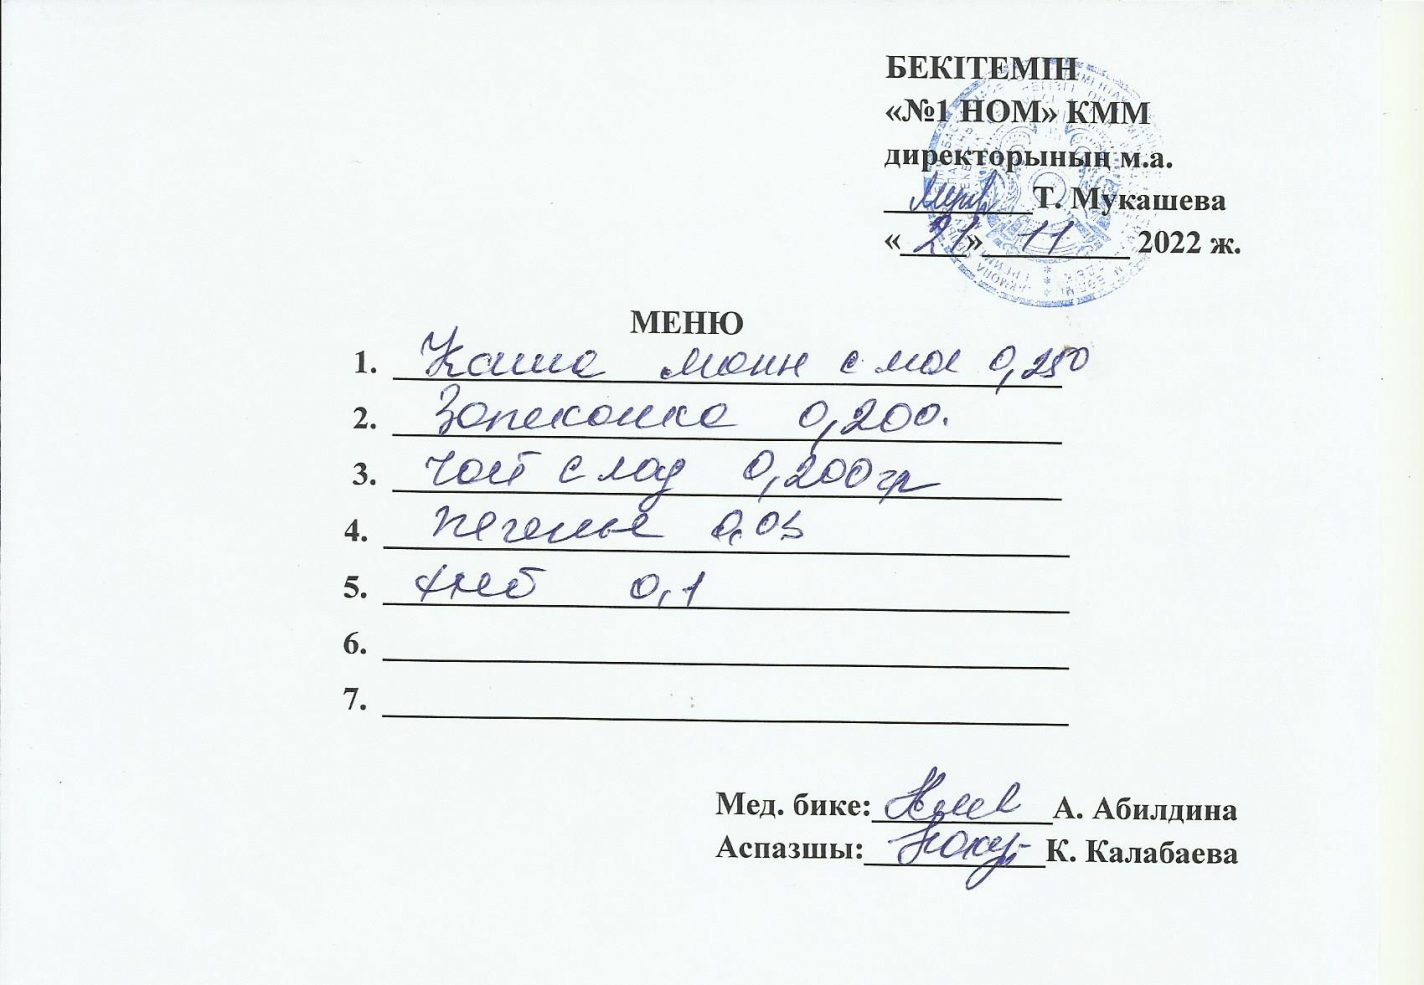 БЕКІТЕМІН
«№1 НОМ» КММ
директорының м.а.
Т. Мукашева
«21» 11 2022 ж.
МЕНЮ
1. Каша манн с мол 0,250
2. Запеканка 0,200.
3. чай слад 0,200гр
4. печенье 0,05
5. хлеб 0,1
6.
7.
Мед. бике: А. Абилдина
Аспазшы: К. Калабаева